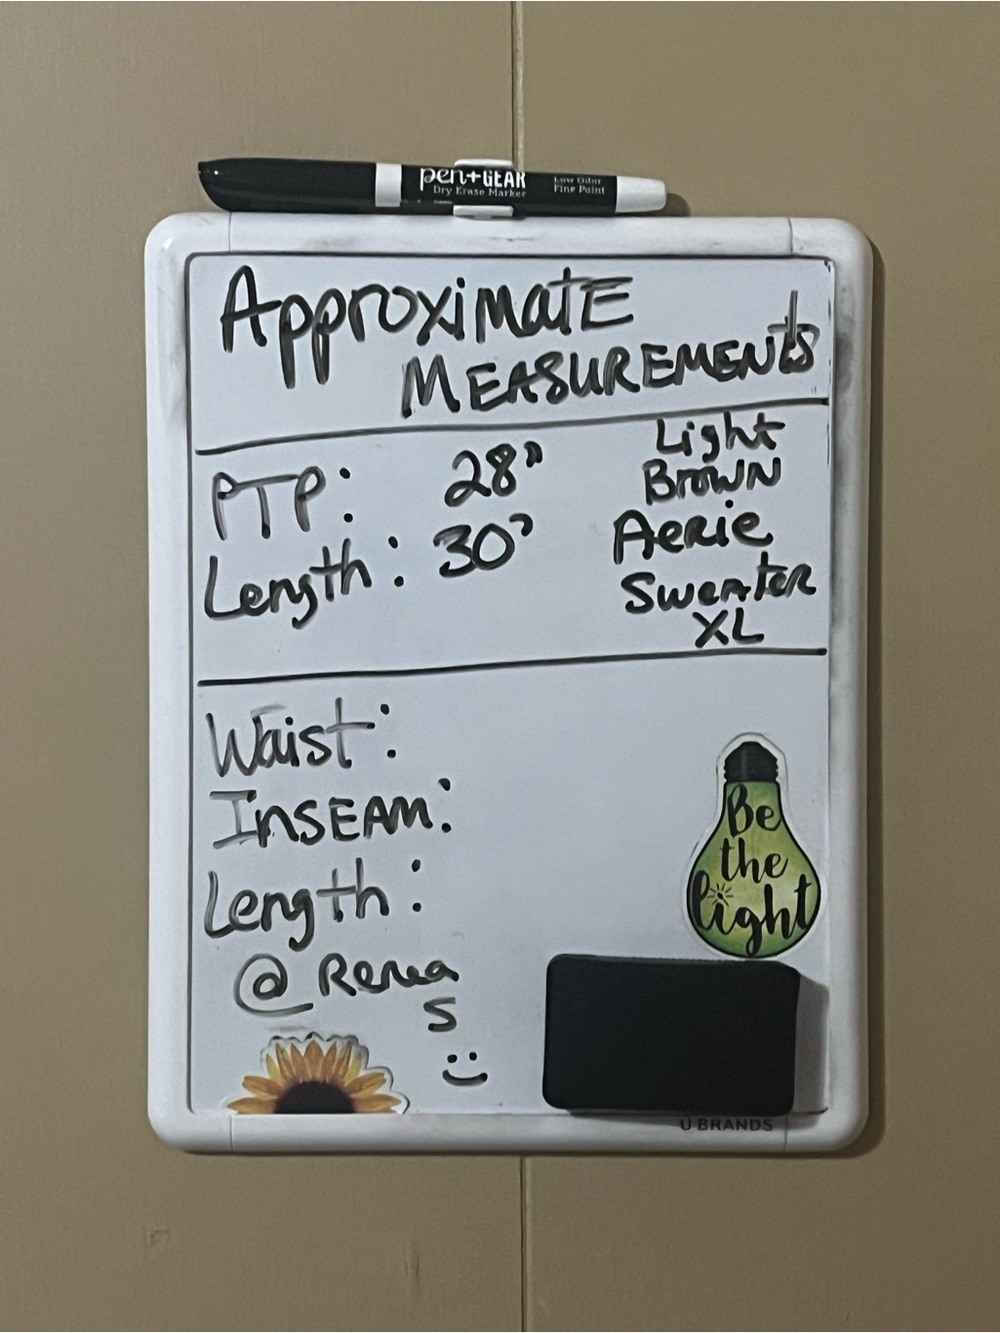 pen+GEAR
Dry Erase Marker
Low Odor
Fine Point
ApproximatE
MEASUREMENtS
PTP: 28"
Length: 30"
Light
BroWN
AeRie
SweAteR
XL
Waist:
InSEAM:
Length:
@ Renea
S
Be
the
light
U BRANDS